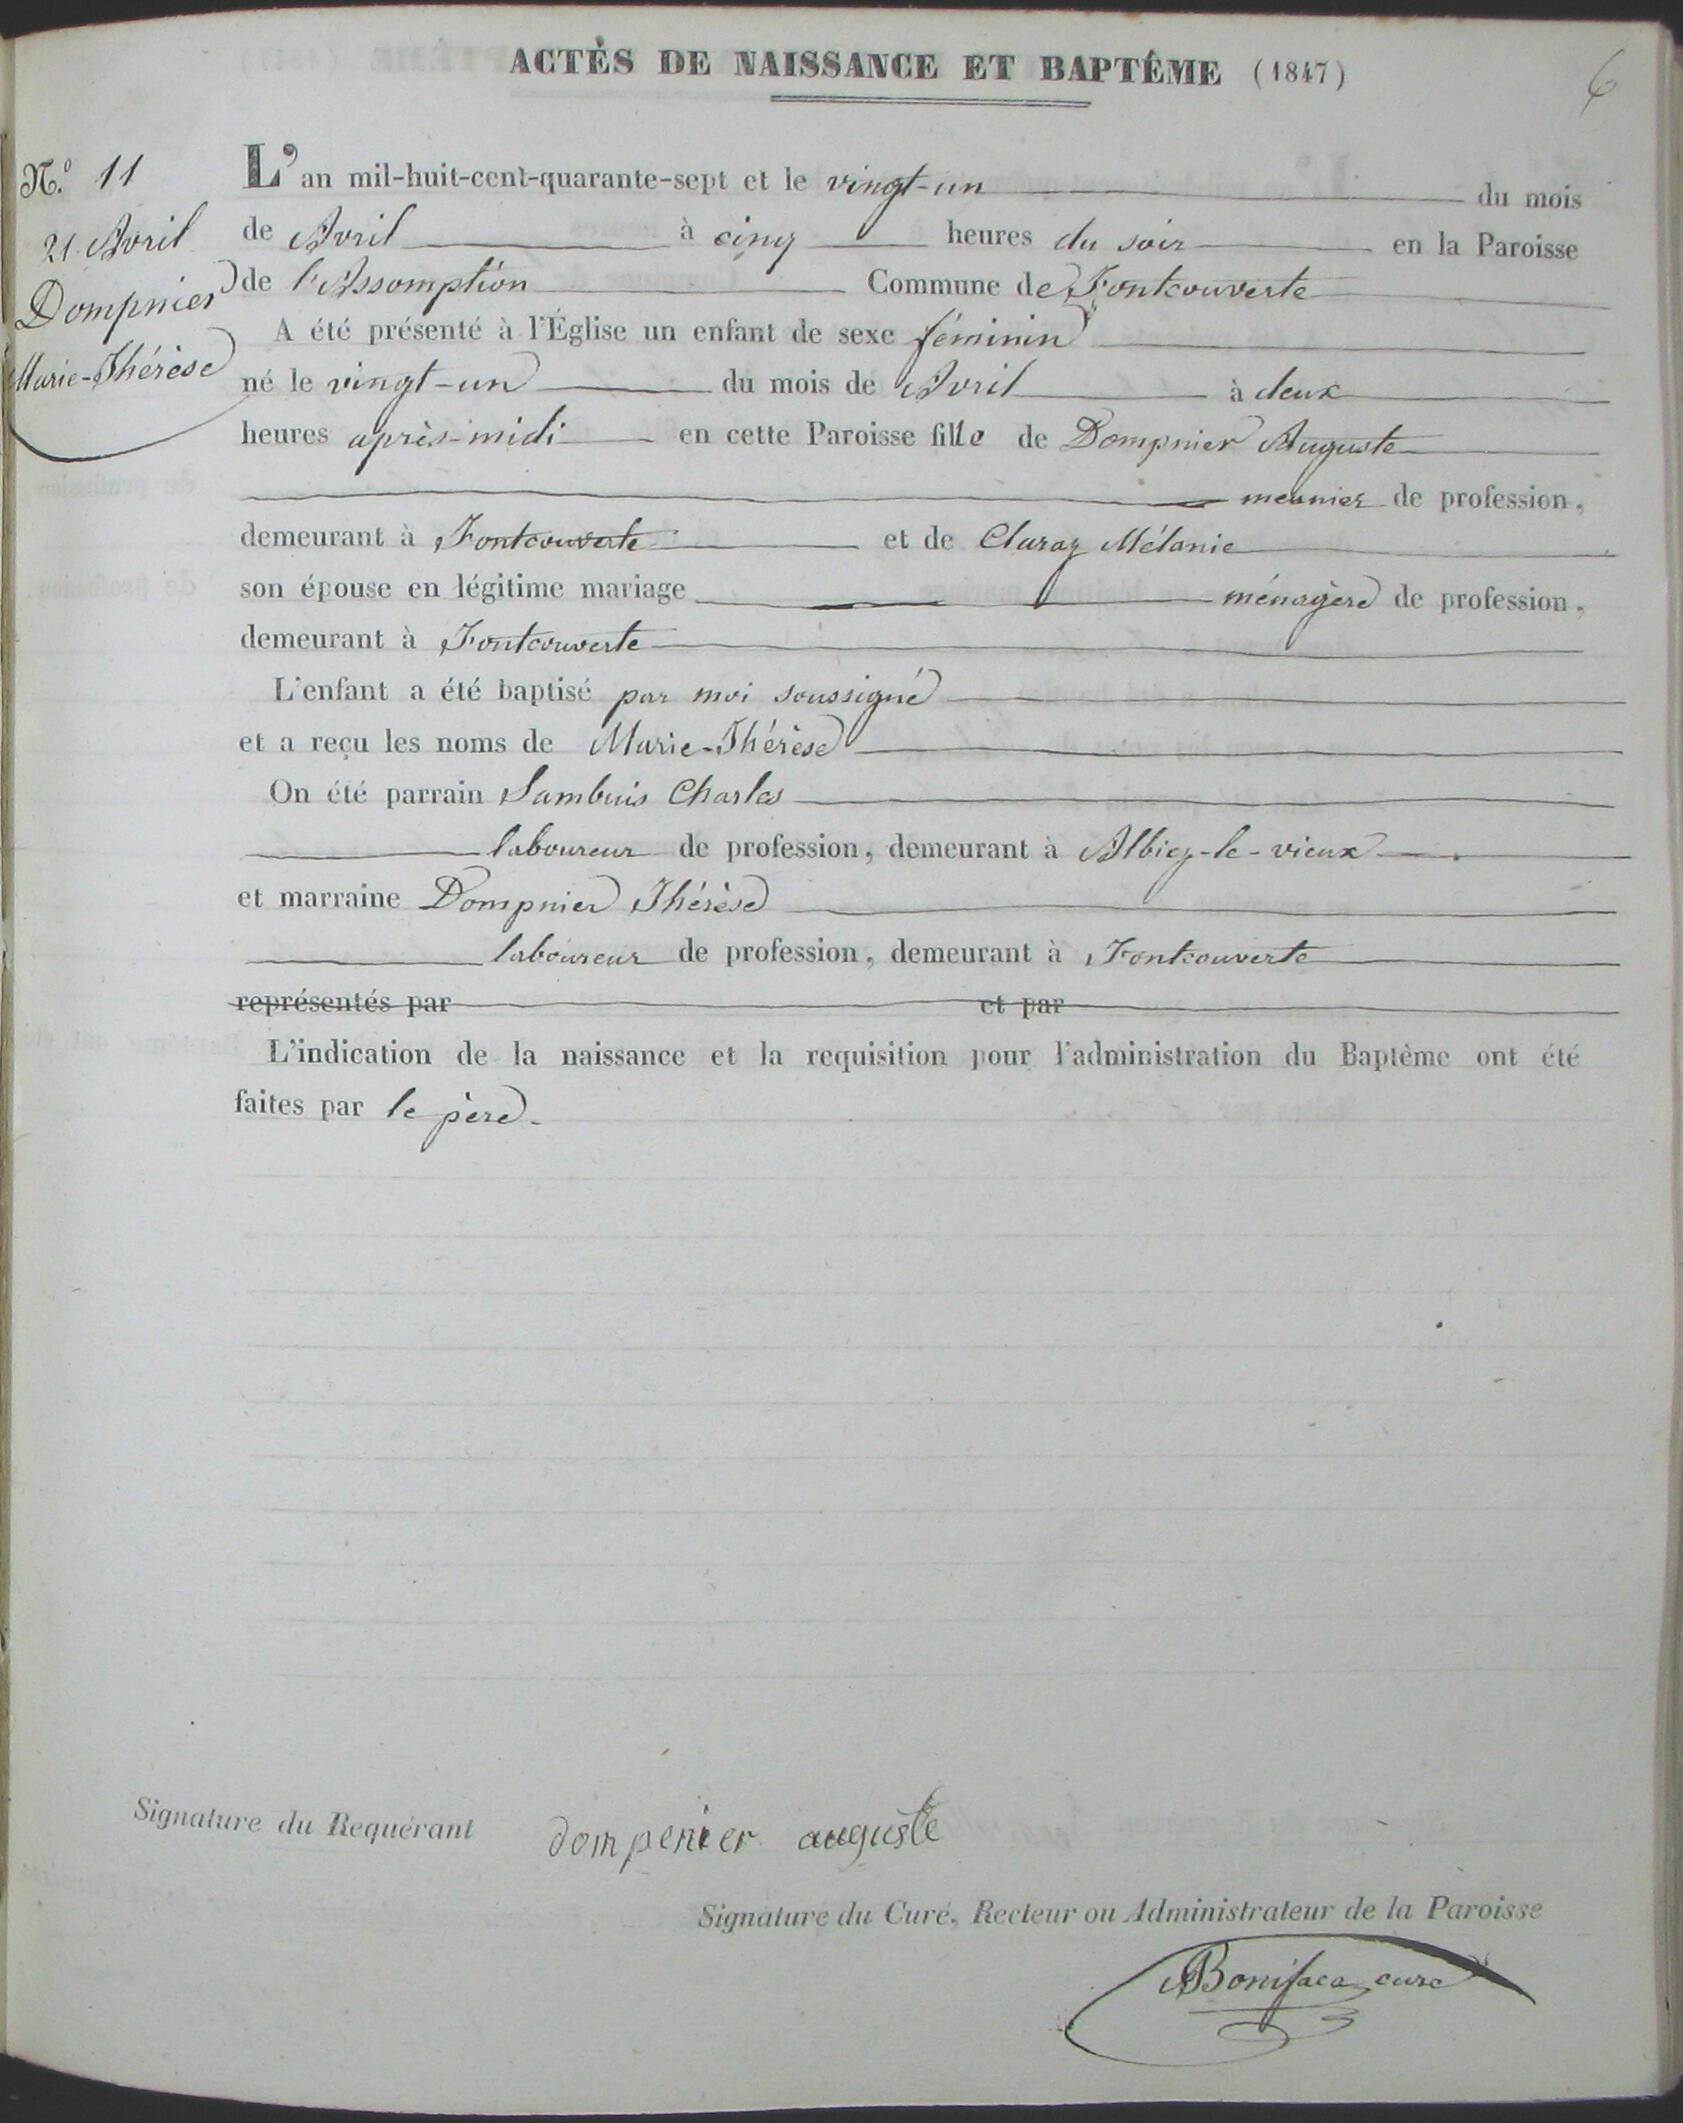 ACTES DE NAISSANCE ET BAPTÊME (1847)
6
N.º 11
21 Avril
Dompnier
Marie-Thérèse
L'an mil-huit-cent-quarante-sept et le vingt-un du mois
de Avril à cinq heures du soir en la Paroisse
de l'Assomption Commune de Fontcouverte
A été présenté à l'Église un enfant de sexe féminin
né le vingt-un du mois de Avril à deux
heures après-midi en cette Paroisse fille de Dompnier Auguste
meunier de profession,
demeurant à Fontcouverte et de Claraz Mélanie
son épouse en légitime mariage ménagère de profession,
demeurant à Fontcouverte
L'enfant a été baptisé par moi soussigné
et a reçu les noms de Marie-Thérèse
On été parrain Sambuis Charles
laboureur de profession, demeurant à Albiez-le-vieux
et marraine Dompnier Thérèse
laboureur de profession, demeurant à Fontcouverte
représentés par et par
L'indication de la naissance et la requisition pour l'administration du Baptême ont été
faites par le père.
Signature du Requérant dompenier auguste
Signature du Curé, Recteur ou Administrateur de la Paroisse
Boniface curé